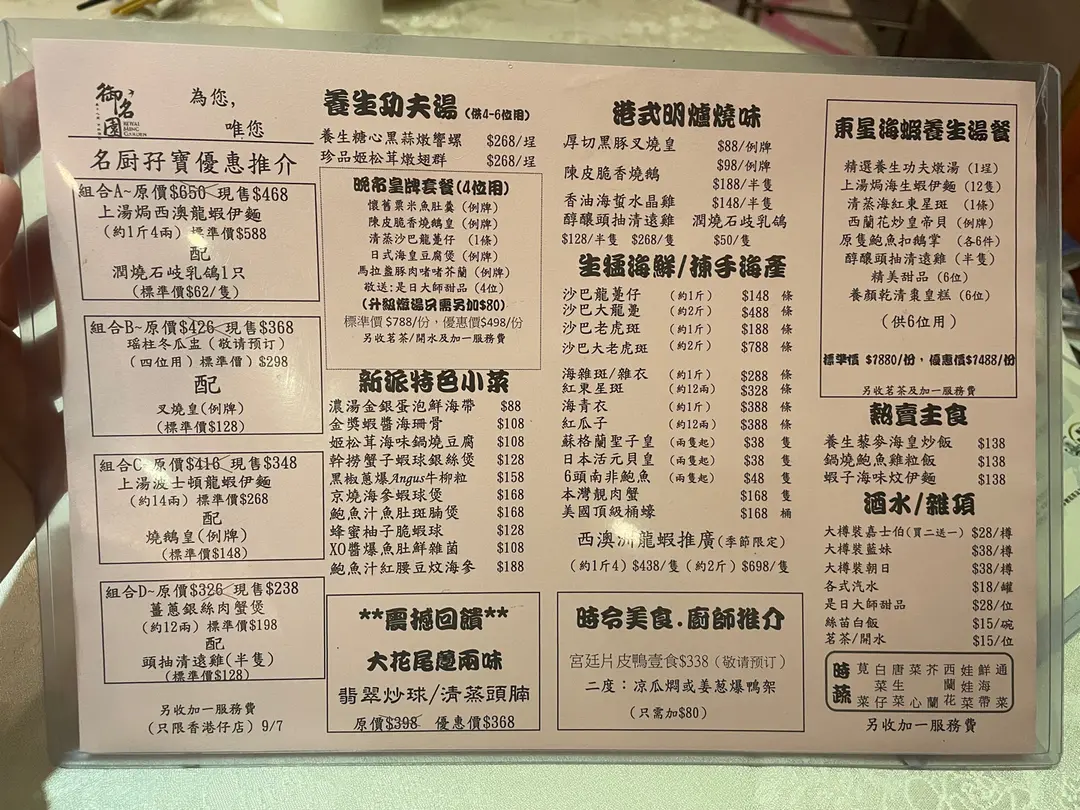 御名園
為您,
唯您
名厨孖寶優惠推介
組合A~原價$650 現售$468
上湯焗西澳龍蝦伊麵
(約1斤4兩) 標準價$588
配
潤燒石岐乳鴿1只
(標準價$62/隻)
組合B~原價$426 現售$368
瑶柱冬瓜盅(敬请预订)
(四位用) 標準價)$298
配
叉燒皇(例牌)
(標準價$128)
組合C~原價$416 現售$348
上湯波士頓龍蝦伊麵
(約14兩) 標準價$268
配
燒鵝皇(例牌)
(標準價$148)
組合D~原價$326 現售$238
薑蔥銀絲肉蟹煲
(約12兩) 標準價$198
配
頭抽清遠雞(半隻)
(標準價$128)
另收加一服務費
(只限香港仔店) 9/7
養生功夫湯(供4-6位用)
養生糖心黑蒜燉響螺 $268/埕
珍品姬松茸燉翅群 $268/埕
晚市皇牌套餐(4位用)
懷舊粟米魚肚羹 (例牌)
陳皮脆香燒鵝皇 (例牌)
清蒸沙巴龍躉仔 (1條)
日式海皇豆腐煲 (例牌)
馬拉盞豚肉啫啫芥蘭 (例牌)
敬送:是日大師甜品 (4位)
(升級燉湯只需另加$80)
標準價 $788/份，優惠價$498/份
另收茗茶/開水及加一服務費
新派特色小菜
濃湯金銀蛋泡鮮海帶 $88
金獎蝦醬海珊骨 $108
姬松茸海味鍋燒豆腐 $108
幹撈蟹子蝦球銀絲煲 $128
黑椒蔥爆Angus牛柳粒 $158
京燒海參蝦球煲 $168
鮑魚汁魚肚斑腩煲 $168
蜂蜜柚子脆蝦球 $128
XO醬爆魚肚鮮雜菌 $108
鮑魚汁紅腰豆炆海參 $188
**震撼回饋**
大花尾躉兩味
翡翠炒球/清蒸頭腩
原價$398 優惠價$368
港式明爐燒味
厚切黑豚叉燒皇 $88/例牌
陳皮脆香燒鵝 $98/例牌
$188/半隻
香油海蜇水晶雞 $148/半隻
醇釀頭抽清遠雞 潤燒石歧乳鴿
$128/半隻 $268/隻 $50/隻
生猛海鮮/揀手海產
沙巴龍躉仔 (約1斤) $148 條
沙巴大龍躉 (約2斤) $488 條
沙巴老虎斑 (約1斤) $188 條
沙巴大老虎斑 (約2斤) $788 條
海雜斑/雜衣 (約1斤) $288 條
紅東星斑 (約12兩) $328 條
海青衣 (約1斤) $388 條
紅瓜子 (約12兩) $388 條
蘇格蘭聖子皇 (兩隻起) $38 隻
日本活元貝皇 (兩隻起) $38 隻
6頭南非鮑魚 (兩隻起) $48 隻
本灣靚肉蟹 $168 隻
美國頂級桶蠔 $168 桶
西澳洲龍蝦推廣(季節限定)
(約1斤4) $438/隻 (約2斤) $698/隻
時令美食.廚師推介
宮廷片皮鴨壹食$338 (敬请预订)
二度：凉瓜焖或姜葱爆鸭架
(只需加$80)
東星海蝦養生湯餐
精選養生功夫燉湯 (1埕)
上湯焗海生蝦伊麵 (12隻)
清蒸海紅東星斑 (1條)
西蘭花炒皇帝貝 (例牌)
原隻鮑魚扣鵝掌 (各6件)
醇釀頭抽清遠雞 (半隻)
精美甜品 (6位)
養顏乾清棗皇糕 (6位)
(供6位用)
標準價 $1880/份，優惠價$1488/份
另收茗茶及加一服務費
熱賣主食
養生藜麥海皇炒飯 $138
鍋燒鮑魚雞粒飯 $138
蝦子海味炆伊麵 $138
酒水/雜項
大樽裝嘉士伯(買二送一) $28/樽
大樽裝藍妹 $38/樽
大樽裝朝日 $38/樽
各式汽水 $18/罐
是日大師甜品 $28/位
絲苗白飯 $15/碗
茗茶/開水 $15/位
時蔬
莧菜 白菜仔 唐生菜 菜心 芥蘭 西蘭花 娃娃菜 鮮海帶 通菜
另收加一服務費